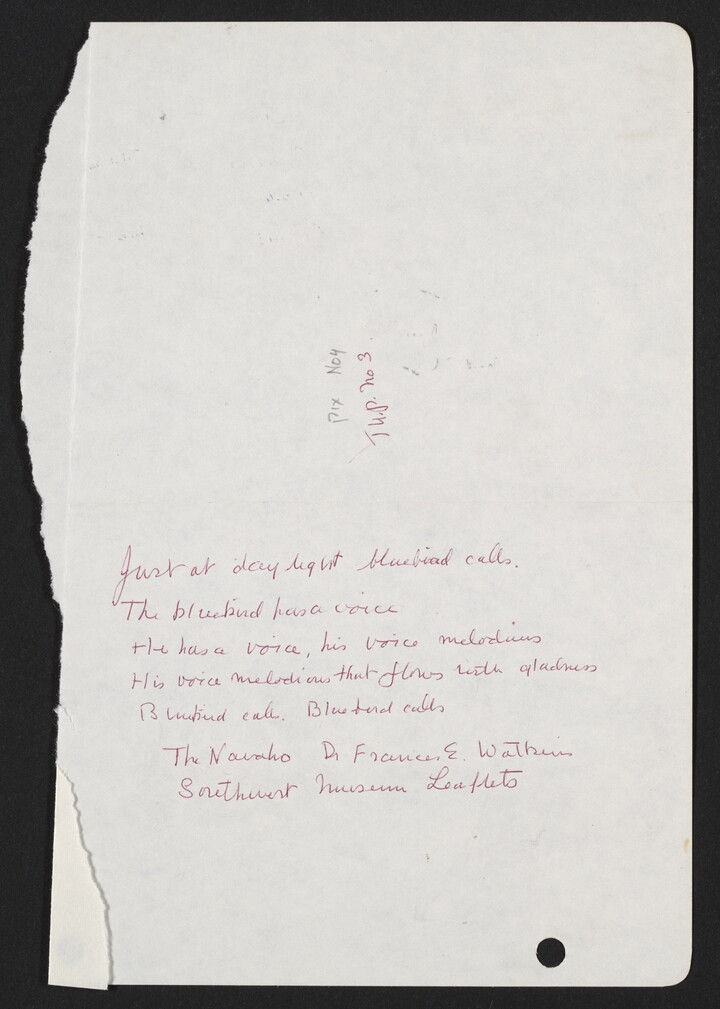 Pix No4
Just at daylight bluebird calls.
The bluebird has a voice
He has a voice, his voice melodious
His voice melodious that flows with gladness
Bluebird calls. Bluebird calls
The Navaho Dr Frances E. Watkins
Southwest Museum Leaflets